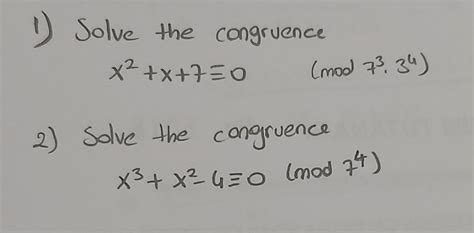 1) Solve the congruence
x²+x+7≡0 (mod 7³.3⁴)
2) Solve the congruence
x³+x²-4≡0 (mod 7⁴)